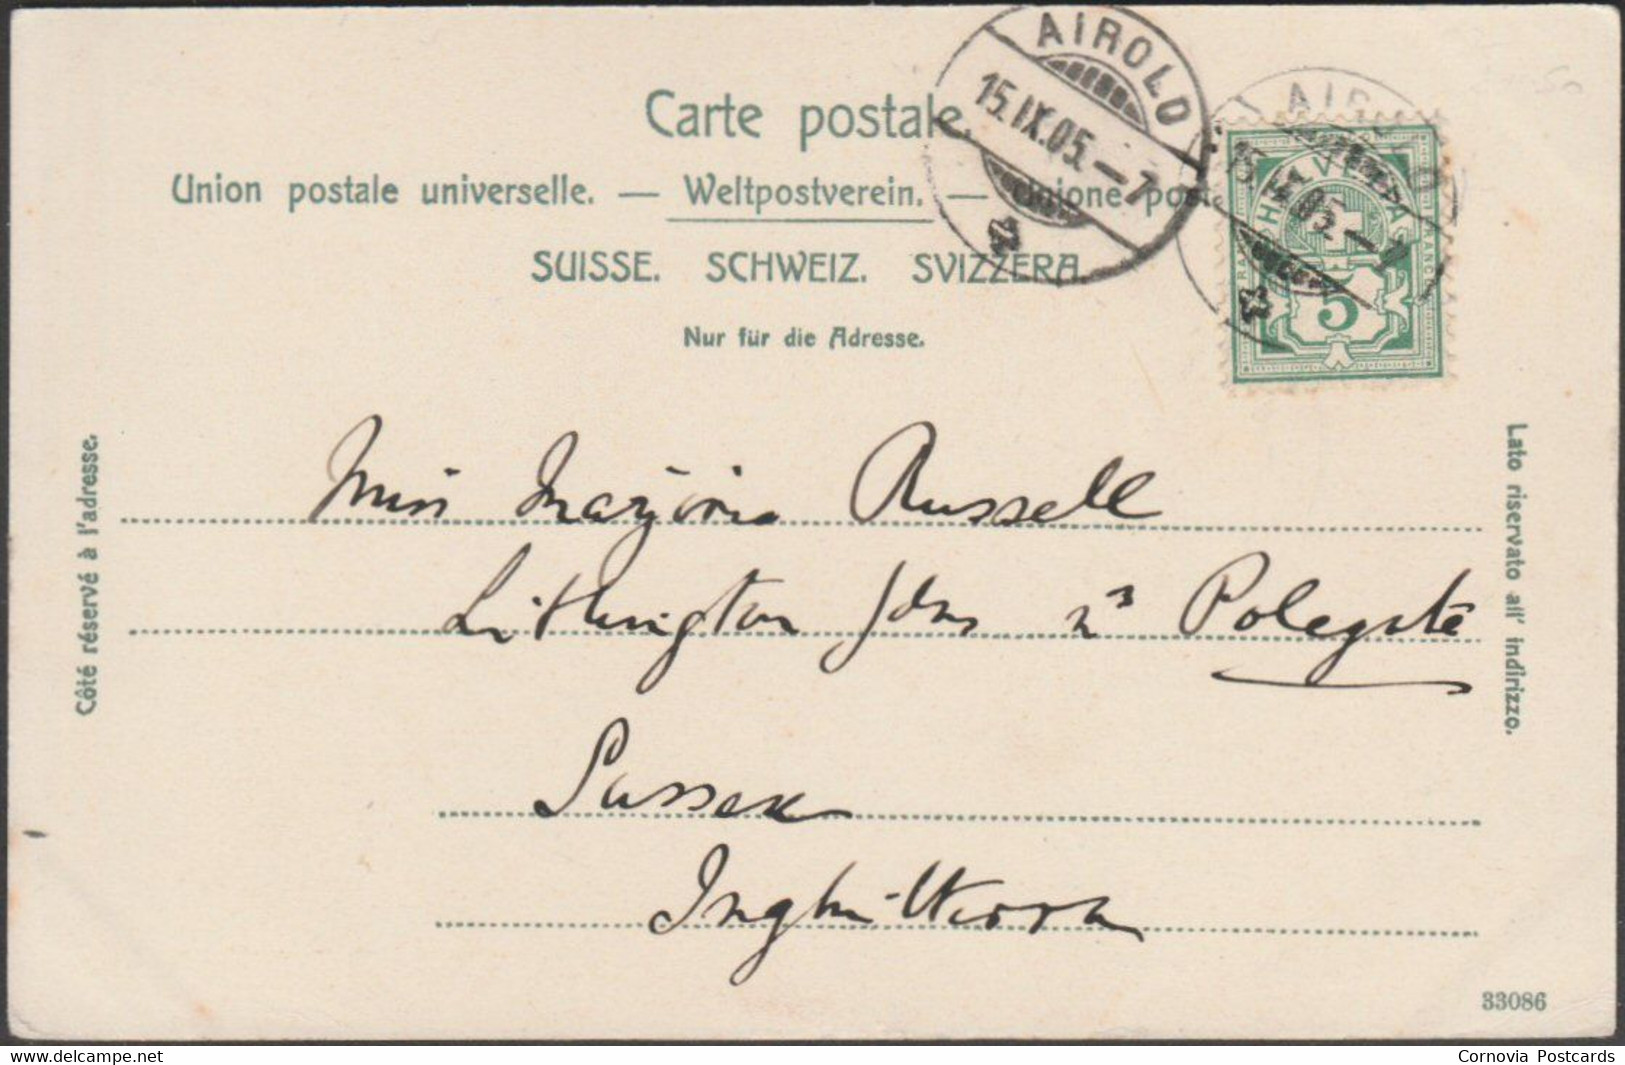 Carte postale.
Union postale universelle. — Weltpostverein. — Unione post
SUISSE. SCHWEIZ. SVIZZERA.
Nur für die Adresse.
AIROLO
15.IX.05.–7
AIROLO
15.IX.05.–7
HELVETIA
FRANCO
5
Côté réservé à l'adresse.
Lato riservato all' indirizzo.
Miss Marjorie Russell
Lithington Polegate
Sussex
Inghilterra
33086
www.delcampe.net
Cornovia Postcards